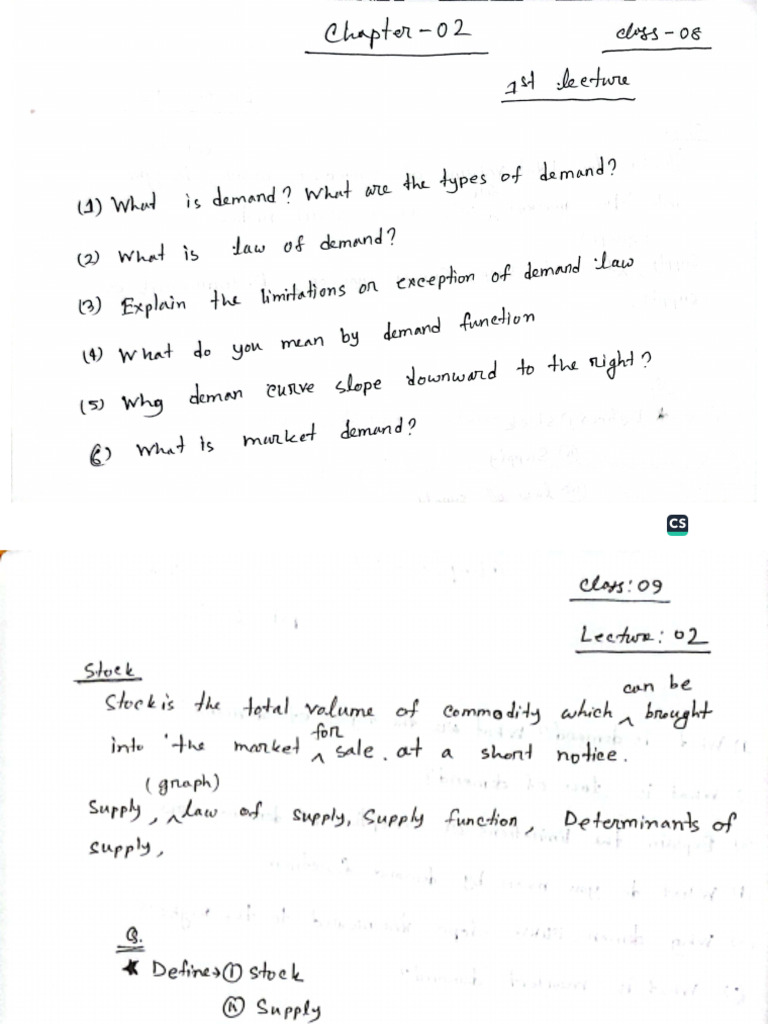 Chapter-02
class-08
1st lecture
(1) What is demand? What are the types of demand?
(2) What is law of demand?
(3) Explain the limitations or exception of demand law
(4) What do you mean by demand function
(5) Why deman curve slope downward to the right?
6) What is market demand?
CS
Class: 09
Lecture: 02
Stock
can be
Stock is the total volume of commodity which ^ brought
for
into the market ^ sale. at a short notice.
(graph)
Supply, ^ law of supply, Supply function, Determinants of
supply,
Q.
* Define→ ① stock
Supply